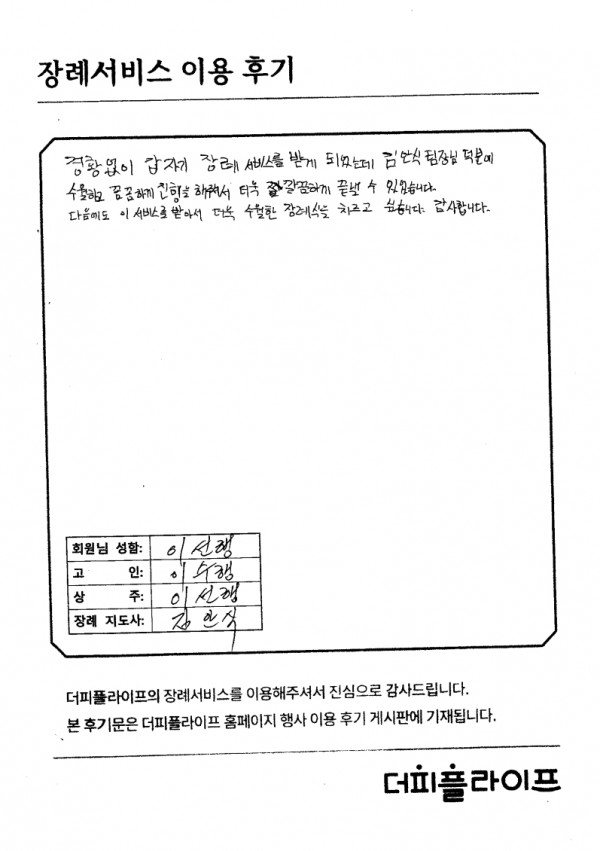 장례서비스 이용 후기
경황없이 갑자기 장례 서비스를 받게 되었는데 김안식 팀장님 덕분에
수월하고 꼼꼼하게 진행을 해줘서 더욱 깔끔하게 끝낼 수 있었습니다.
다음에도 이 서비스를 받아서 더욱 수월한 장례식을 치르고 싶습니다. 감사합니다.
회원님 성함: 이선행
고 인: 이수행
상 주: 이선행
장례 지도사: 김안식
더피플라이프의 장례서비스를 이용해주셔서 진심으로 감사드립니다.
본 후기문은 더피플라이프 홈페이지 행사 이용 후기 게시판에 기재됩니다.
더피플라이프